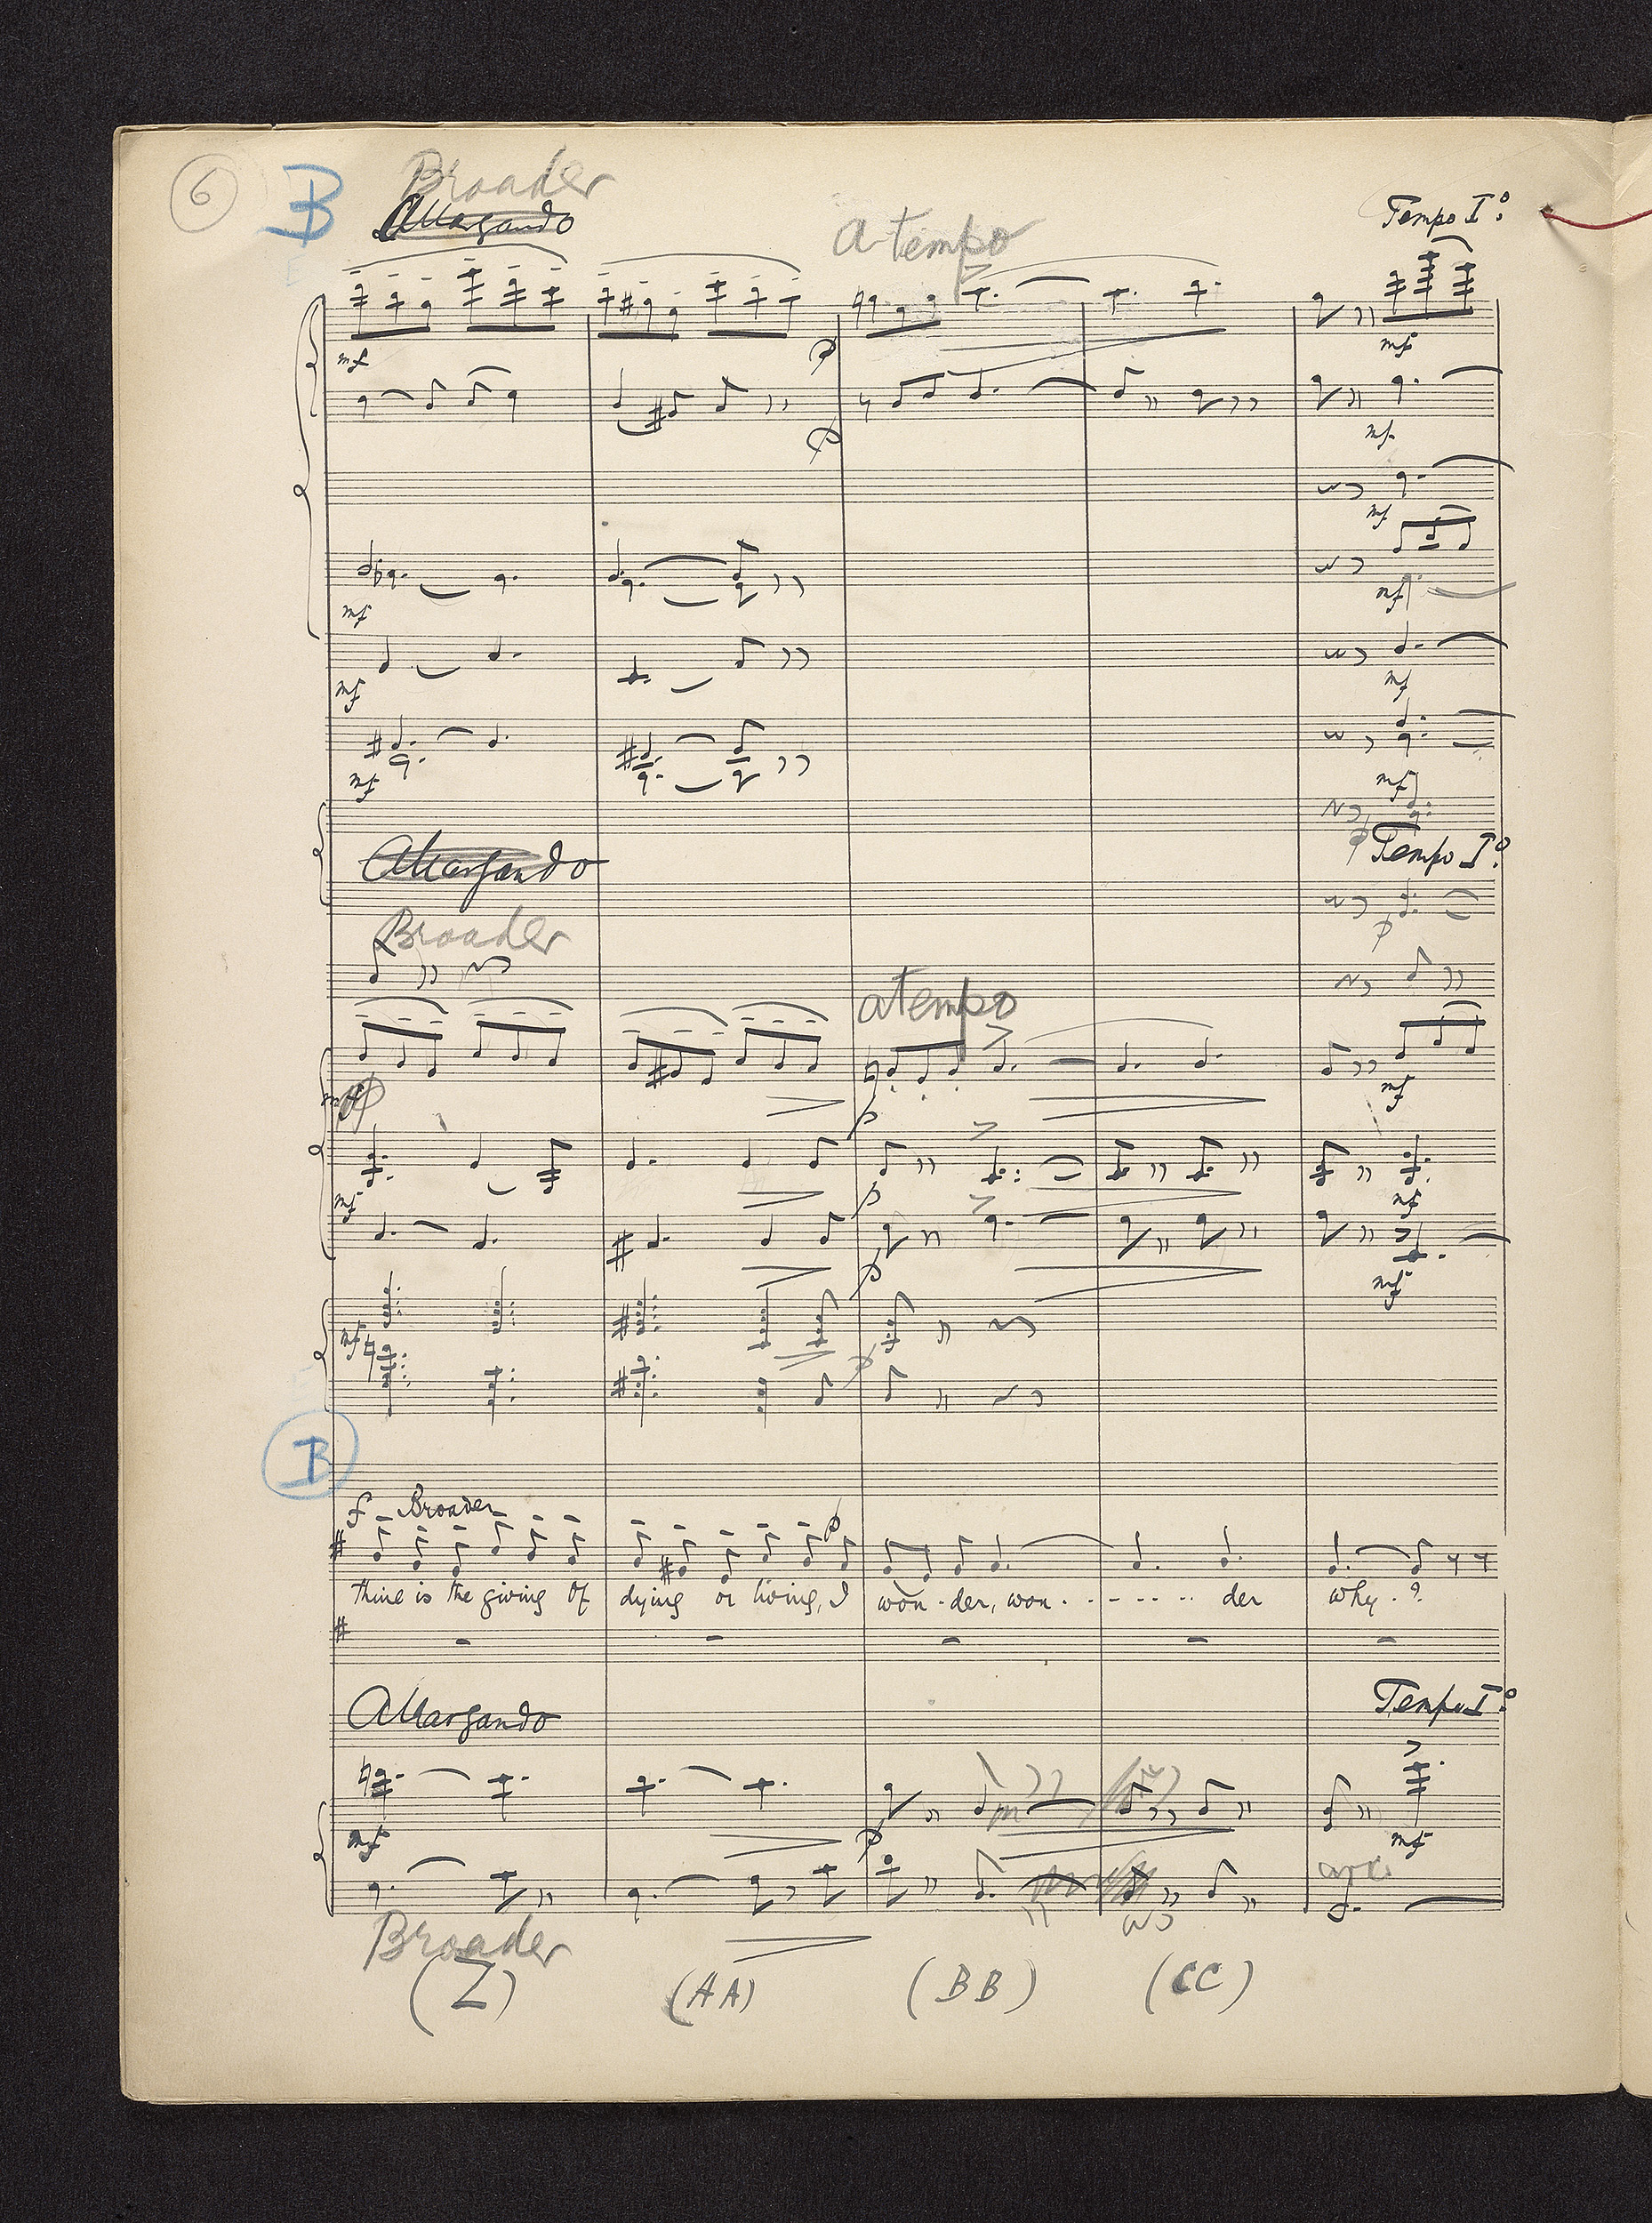 6 B Broader
Allargando
a tempo
Tempo Iº.
mf
mf
p
mf
p
mf
mf
mf
mf
mf
mf
mf
mf
Allargando
p Tempo Iº.
p
Broader
a tempo
mf p
p
mf
mf
p
mf
p
mf
mf
p
B
f Broader
p
thine is the giving of dying or living, I won - der, won - - - - - der why . ?
Allargando
Tempo Iº.
mf
p
mf
arco
Broader
(Z) (AA) (BB) (CC)